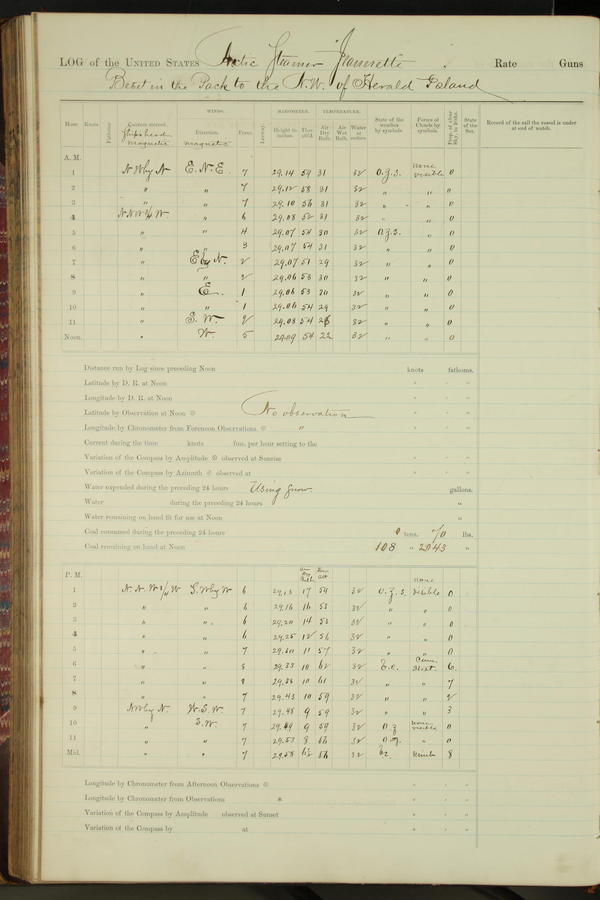 LOG of the UNITED STATES Arctic Steamer "Jeannette" . Rate Guns
Beset in the Pack to the N.W. of Herald Island
WINDS. BAROMETER. TEMPERATURE.
Hour. Knots Fathoms Courses steered. Direction. Force. Leeway. Height in inches. Ther. att'd. Air Dry Bulb. Air Wet Bulb. Water at surface. State of the weather by symbols. Forms of Clouds by symbols. Prop. of clear Sky, in 10ths. State of the Sea. Record of the sail the vessel is under at end of watch.
Ship's head magnetic magnetic
A. M.
1 N W by N E. N. E. 7 29.14 59 31 32 O.Z.S. None visible 0
2 " " 7 29.12 58 31 32 " " " 0
3 " " 7 29.10 56 31 32 " " " 0
4 N N W ½ W " 6 29.08 52 31 32 " " 0
5 " " 4 29.07 54 30 32 O.Z.S. " 0
6 " " 3 29.07 54 31 32 " " 0
7 " E by N. 2 29.07 51 29 32 " " 0
8 " " 2 29.06 53 30 32 " " 0
9 " E. 1 29.06 53 30 32 " " 0
10 " " 1 29.06 54 29 32 " " 0
11 " S. W. 2 29.08 54 26 32 " " 0
Noon. " W. 5 29.09 54 22 32 " " 0
Distance run by Log since preceding Noon knots fathoms.
Latitude by D. R. at Noon
Longitude by D. R. at Noon
Latitude by Observation at Noon No observation
Longitude by Chronometer from Forenoon Observations "
Current during the time knots fms. per hour setting to the
Variation of the Compass by Amplitude observed at Sunrise
Variation of the Compass by Azimuth observed at
Water expended during the preceding 24 hours Using snow gallons.
Water during the preceding 24 hours "
Water remaining on hand fit for use at Noon "
Coal consumed during the preceding 24 hours 0 tons. 70 lbs.
Coal remaining on hand at Noon 108 " 2043 "
P. M.
1 N. N. W ½ W S. W by W 6 29.13 17 54 32 O. Z. S. None visible 0
2 " " 6 29.16 16 53 32 " " 0
3 " " 6 29.20 14 53 32 " " 0
4 " " 6 29.25 12 56 32 " " 0
5 " " 7 29.30 11 57 32 " " 0
6 " " 8 29.33 10 62 32 6
7 " " 8 29.38 10 61 32 " " 7
8 " " 7 29.43 10 59 32 " " 2
9 NW by N. W. S. W. 7 29.45 9 59 32 " " 3
10 " S. W. 7 29.49 9 59 32 O. Z None visible 0
11 " " 7 29.53 8 56 32 " 0
Mid. " " 7 29.58 56 32 8
Longitude by Chronometer from Afternoon Observations
Longitude by Chronometer from Observations *
Variation of the Compass by Amplitude observed at Sunset
Variation of the Compass by at